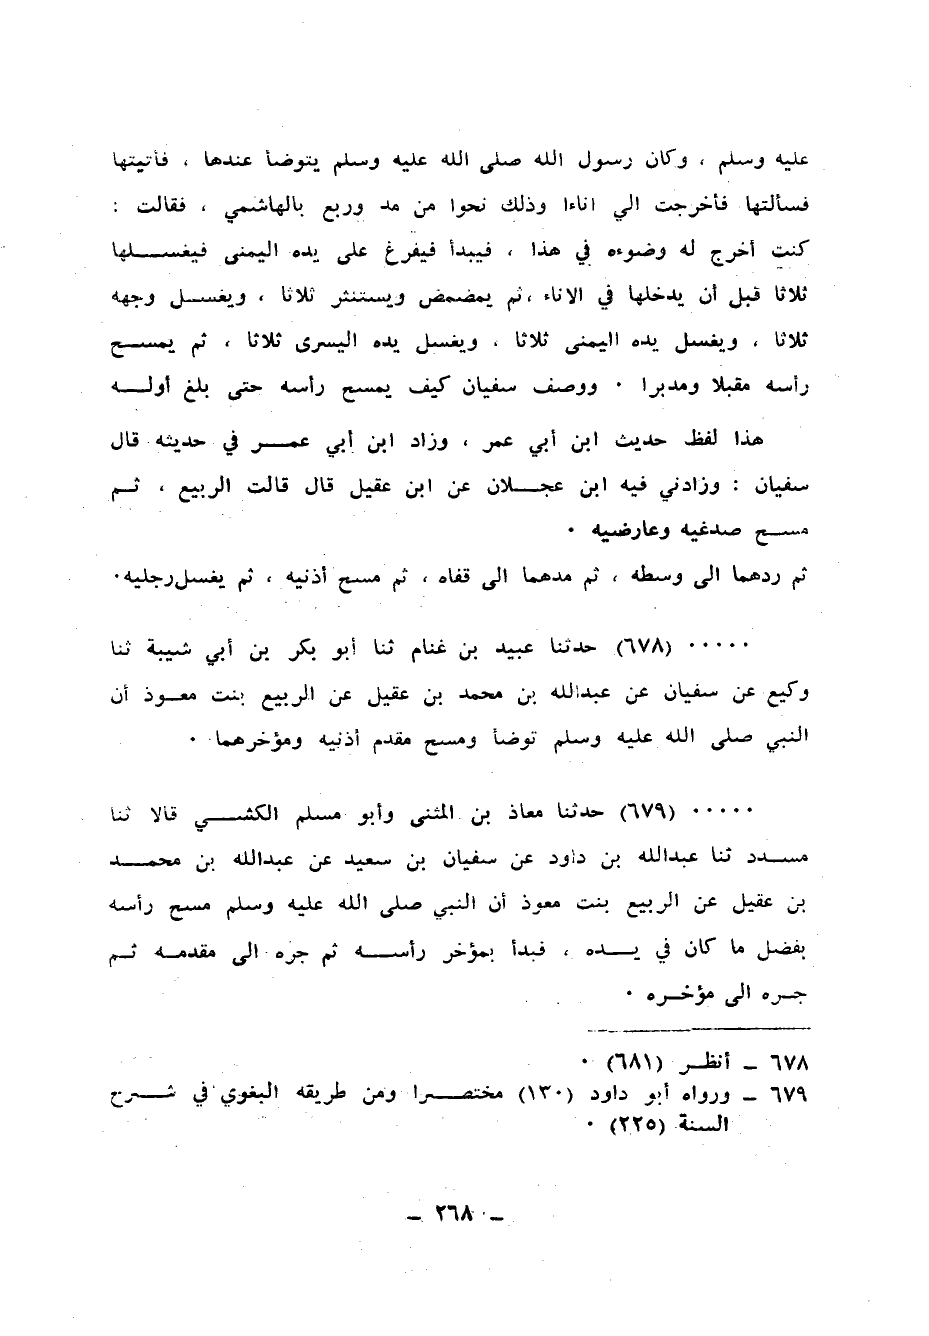 عليه وسلم ، وكان رسول الله صلى الله عليه وسلم يتوضأ عندها ، فأتيتها
فسألتها فأخرجت الي اناءا وذلك نحوا من مد وربع بالهاشمي ، فقالت :
كنت أخرج له وضوءه في هذا ، فيبدأ فيفرغ على يده اليمنى فيغسلها
ثلاثا قبل أن يدخلها في الاناء ، ثم يمضمض ويستنثر ثلاثا ، ويغسل وجهه
ثلاثا ، ويغسل يده اليمنى ثلاثا ، ويغسل يده اليسرى ثلاثا ، ثم يمسح
رأسه مقبلا ومدبرا . ووصف سفيان كيف يمسح رأسه حتى بلغ أوله
هذا لفظ حديث ابن أبي عمر ، وزاد ابن أبي عمر في حديثه قال
سفيان : وزادني فيه ابن عجلان عن ابن عقيل قال قالت الربيع ، ثم
مسح صدغيه وعارضيه .
ثم ردهما الى وسطه ، ثم مدهما الى قفاه ، ثم مسح أذنيه ، ثم يغسل رجليه .
..... (٦٧٨) حدثنا عبيد بن غنام ثنا أبو بكر بن أبي شيبة ثنا
وكيع عن سفيان عن عبدالله بن محمد بن عقيل عن الربيع بنت معوذ أن
النبي صلى الله عليه وسلم توضأ ومسح مقدم أذنيه ومؤخرهما .
..... (٦٧٩) حدثنا معاذ بن المثنى وأبو مسلم الكشي قالا ثنا
مسدد ثنا عبدالله بن داود عن سفيان بن سعيد عن عبدالله بن محمد
بن عقيل عن الربيع بنت معوذ أن النبي صلى الله عليه وسلم مسح رأسه
بفضل ما كان في يده ، فبدأ بمؤخر رأسه ثم جره الى مقدمه ثم
جره الى مؤخره .
٦٧٨ - أنظر (٦٨١) .
٦٧٩ - ورواه أبو داود (١٣٠) مختصرا ومن طريقه البغوي في شرح
السنة (٢٢٥) .
- ٢٦٨ -